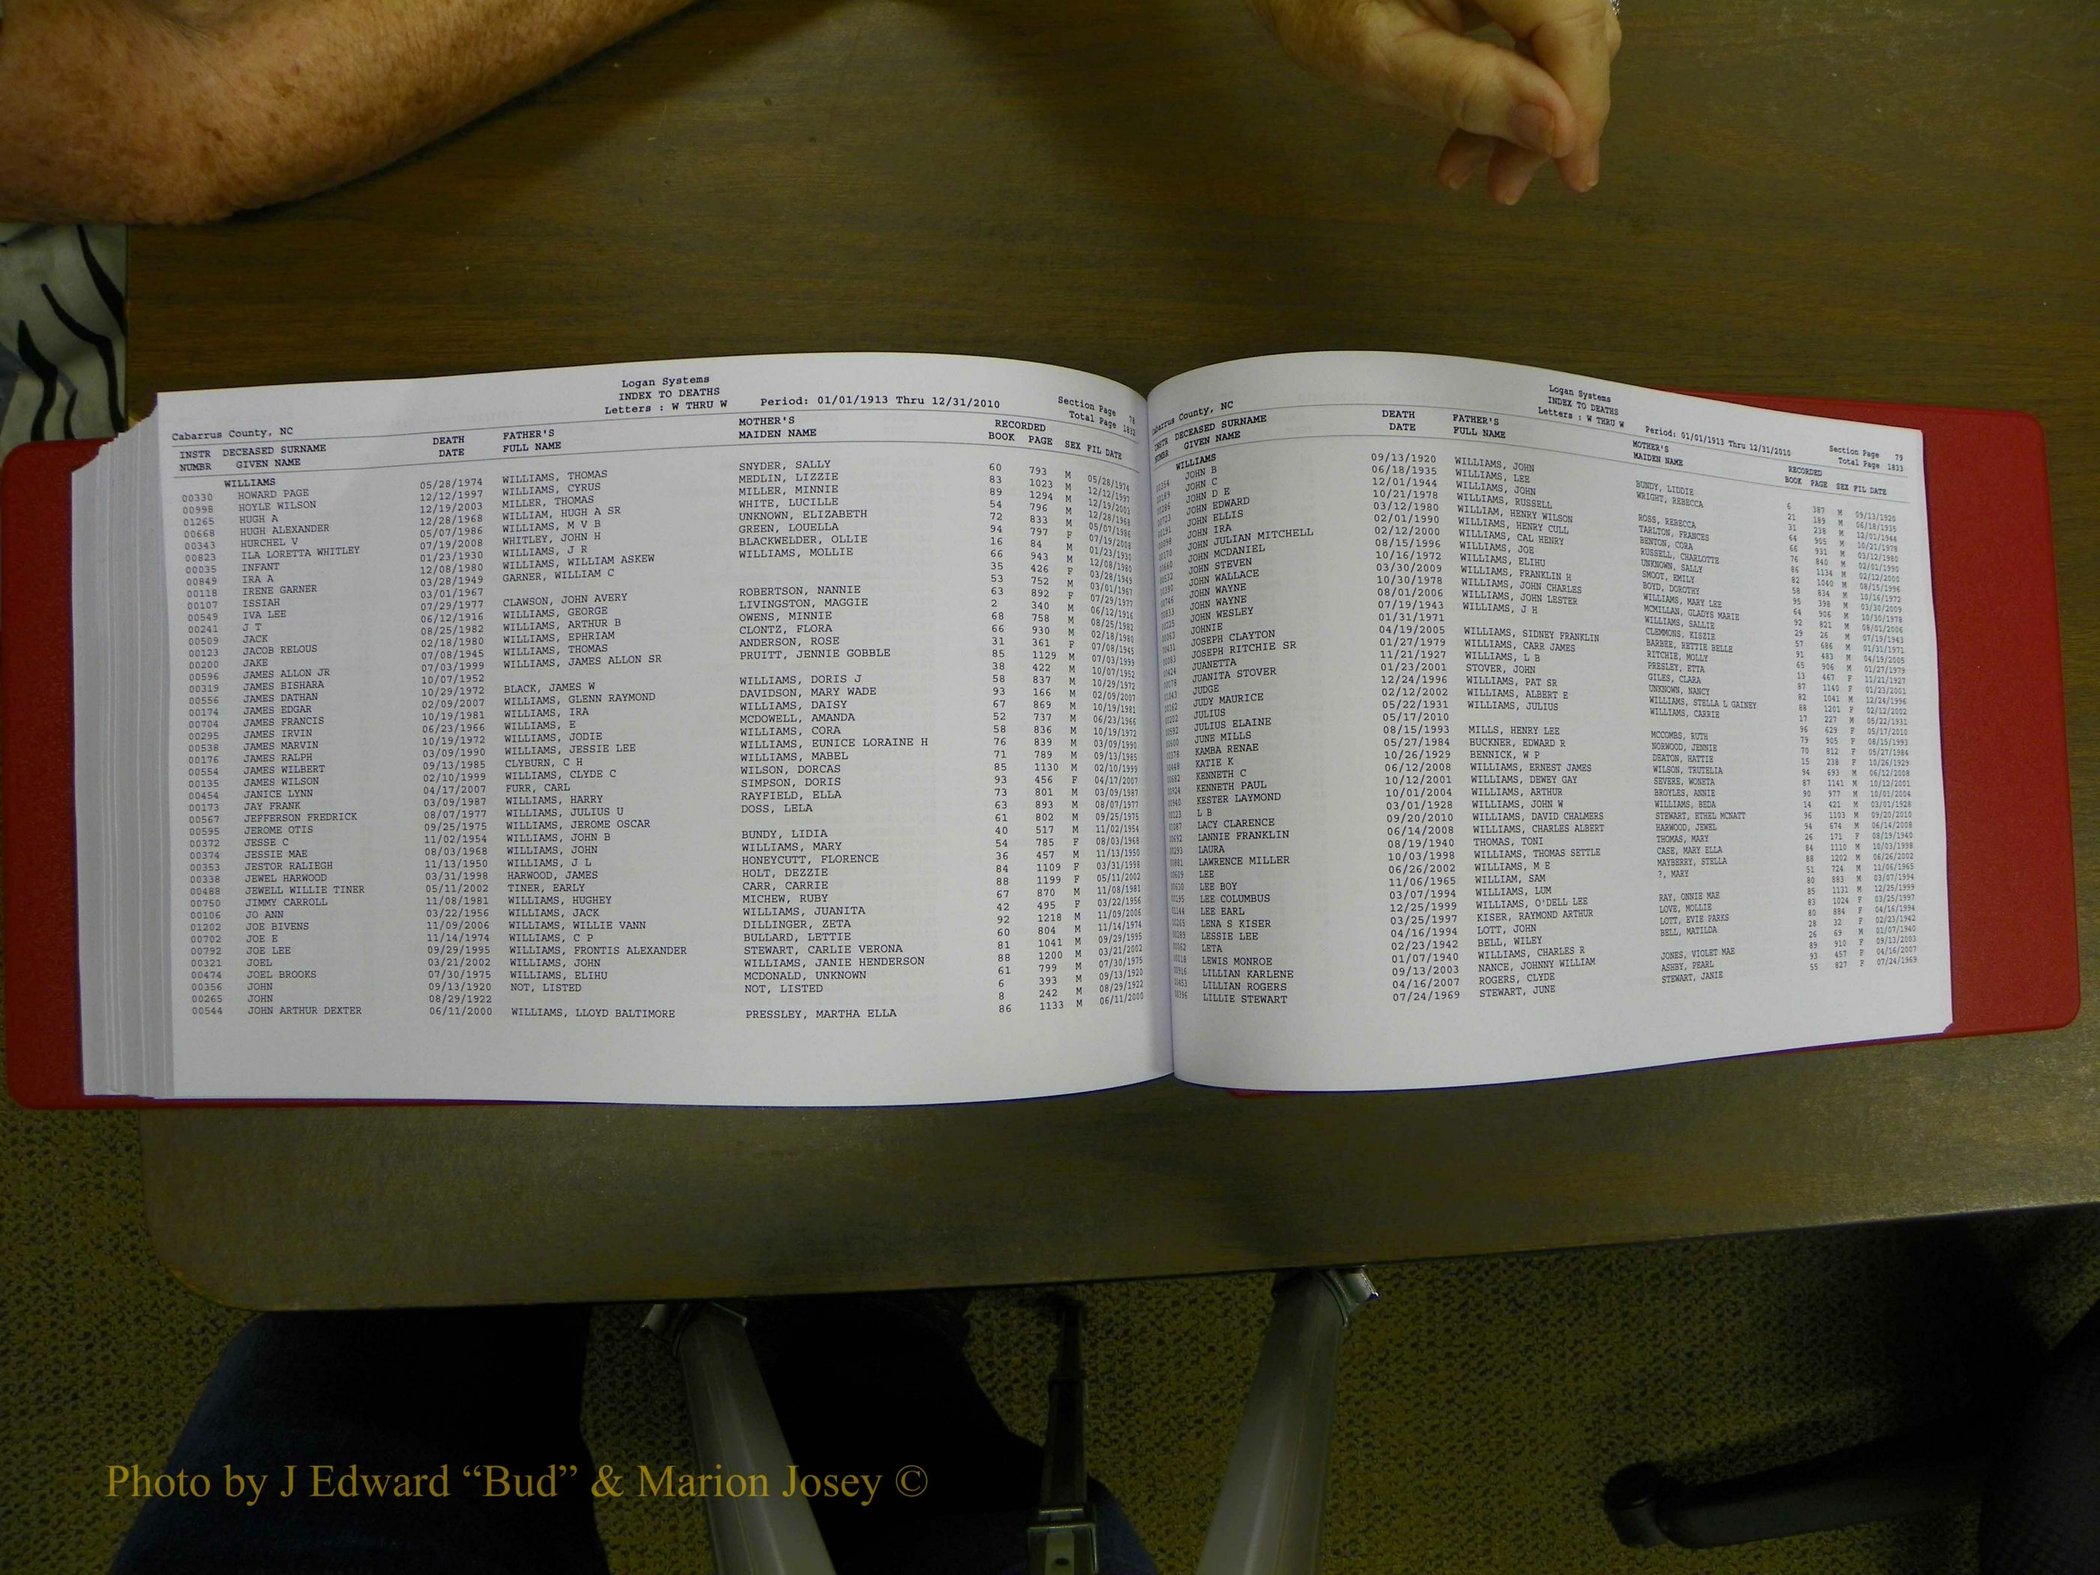 Logan Systems
INDEX TO DEATHS
Cabarrus County, NC Letters : W THRU W Period: 01/01/1913 Thru 12/31/2010 Section Page 78
Total Page 1832
INSTR DECEASED SURNAME DEATH FATHER'S MOTHER'S RECORDED
NUMBR GIVEN NAME DATE FULL NAME MAIDEN NAME BOOK PAGE SEX FIL DATE
WILLIAMS
00330 HOWARD PAGE 05/28/1974 WILLIAMS, THOMAS SNYDER, SALLY 60 793 M 05/28/1974
00998 HOYLE WILSON 12/12/1997 WILLIAMS, CYRUS MEDLIN, LIZZIE 83 1023 M 12/12/1997
01265 HUGH A 12/19/2003 MILLER, THOMAS MILLER, MINNIE 89 1294 M 12/19/2003
00668 HUGH ALEXANDER 12/28/1968 WILLIAM, HUGH A SR WHITE, LUCILLE 54 796 M 12/28/1968
00343 HURCHEL V 05/07/1986 WILLIAMS, M V B UNKNOWN, ELIZABETH 72 833 M 05/07/1986
00823 ILA LORETTA WHITLEY 07/19/2008 WHITLEY, JOHN H GREEN, LOUELLA 94 797 F 07/19/2008
00035 INFANT 01/23/1930 WILLIAMS, J R BLACKWELDER, OLLIE 16 84 M 01/23/1930
00849 IRA A 12/08/1980 WILLIAMS, WILLIAM ASKEW WILLIAMS, MOLLIE 66 943 M 12/08/1980
00118 IRENE GARNER 03/28/1949 GARNER, WILLIAM C 35 426 F 03/28/1949
00107 ISSIAH 03/01/1967 53 752 M 03/01/1967
00549 IVA LEE 07/29/1977 CLAWSON, JOHN AVERY ROBERTSON, NANNIE 63 892 F 07/29/1977
00241 J T 06/12/1916 WILLIAMS, GEORGE LIVINGSTON, MAGGIE 2 340 M 06/12/1916
00509 JACK 08/25/1982 WILLIAMS, ARTHUR B OWENS, MINNIE 68 758 M 08/25/1982
00123 JACOB RELOUS 02/18/1980 WILLIAMS, EPHRIAM CLONTZ, FLORA 66 930 M 02/18/1980
00200 JAKE 07/08/1945 WILLIAMS, THOMAS ANDERSON, ROSE 31 361 F 07/08/1945
00596 JAMES ALLON JR 07/03/1999 WILLIAMS, JAMES ALLON SR PRUITT, JENNIE GOBBLE 85 1129 M 07/03/1999
00319 JAMES BISHARA 10/07/1952 38 422 M 10/07/1952
00556 JAMES DATHAN 10/29/1972 BLACK, JAMES W WILLIAMS, DORIS J 58 837 M 10/29/1972
00174 JAMES EDGAR 02/09/2007 WILLIAMS, GLENN RAYMOND DAVIDSON, MARY WADE 93 166 M 02/09/2007
00704 JAMES FRANCIS 10/19/1981 WILLIAMS, IRA WILLIAMS, DAISY 67 869 M 10/19/1981
00295 JAMES IRVIN 06/23/1966 WILLIAMS, E MCDOWELL, AMANDA 52 737 M 06/23/1966
00538 JAMES MARVIN 10/19/1972 WILLIAMS, JODIE WILLIAMS, CORA 58 836 M 10/19/1972
00176 JAMES RALPH 03/09/1990 WILLIAMS, JESSIE LEE WILLIAMS, EUNICE LORAINE H 76 839 M 03/09/1990
00554 JAMES WILBERT 09/13/1985 CLYBURN, C H WILLIAMS, MABEL 71 789 M 09/13/1985
00135 JAMES WILSON 02/10/1999 WILLIAMS, CLYDE C WILSON, DORCAS 85 1130 M 02/10/1999
00454 JANICE LYNN 04/17/2007 FURR, CARL SIMPSON, DORIS 93 456 F 04/17/2007
00173 JAY FRANK 03/09/1987 WILLIAMS, HARRY RAYFIELD, ELLA 73 801 M 03/09/1987
00567 JEFFERSON FREDRICK 08/07/1977 WILLIAMS, JULIUS U DOSS, LELA 63 893 M 08/07/1977
00595 JEROME OTIS 09/25/1975 WILLIAMS, JEROME OSCAR 61 802 M 09/25/1975
00372 JESSE C 11/02/1954 WILLIAMS, JOHN B BUNDY, LIDIA 40 517 M 11/02/1954
00374 JESSIE MAE 08/03/1968 WILLIAMS, JOHN WILLIAMS, MARY 54 785 F 08/03/1968
00353 JESTOR RALIEGH 11/13/1950 WILLIAMS, J L HONEYCUTT, FLORENCE 36 457 M 11/13/1950
00338 JEWEL HARWOOD 03/31/1998 HARWOOD, JAMES HOLT, DEZZIE 84 1109 F 03/31/1998
00488 JEWELL WILLIE TINER 05/11/2002 TINER, EARLY CARR, CARRIE 88 1199 F 05/11/2002
00750 JIMMY CARROLL 11/08/1981 WILLIAMS, HUGHEY MICHEW, RUBY 67 870 M 11/08/1981
00106 JO ANN 03/22/1956 WILLIAMS, JACK WILLIAMS, JUANITA 42 495 F 03/22/1956
01202 JOE BIVENS 11/09/2006 WILLIAMS, WILLIE VANN DILLINGER, ZETA 92 1218 M 11/09/2006
00702 JOE E 11/14/1974 WILLIAMS, C P BULLARD, LETTIE 60 804 M 11/14/1974
00792 JOE LEE 09/29/1995 WILLIAMS, FRONTIS ALEXANDER STEWART, CARLIE VERONA 81 1041 M 09/29/1995
00321 JOEL 03/21/2002 WILLIAMS, JOHN WILLIAMS, JANIE HENDERSON 88 1200 M 03/21/2002
00474 JOEL BROOKS 07/30/1975 WILLIAMS, ELIHU MCDONALD, UNKNOWN 61 799 M 07/30/1975
00356 JOHN 09/13/1920 NOT, LISTED NOT, LISTED 6 393 M 09/13/1920
00265 JOHN 08/29/1922 8 242 M 08/29/1922
00544 JOHN ARTHUR DEXTER 06/11/2000 WILLIAMS, LLOYD BALTIMORE PRESSLEY, MARTHA ELLA 86 1133 M 06/11/2000
Logan Systems
INDEX TO DEATHS
Cabarrus County, NC Letters : W THRU W Period: 01/01/1913 Thru 12/31/2010 Section Page 79
Total Page 1833
INSTR DECEASED SURNAME DEATH FATHER'S MOTHER'S RECORDED
NUMBR GIVEN NAME DATE FULL NAME MAIDEN NAME BOOK PAGE SEX FIL DATE
WILLIAMS
JOHN B 09/13/1920 WILLIAMS, JOHN BUNDY, LIDDIE 6 387 M 09/13/1920
JOHN C 06/18/1935 WILLIAMS, LEE WRIGHT, REBECCA 21 189 M 06/18/1935
JOHN D E 12/01/1944 WILLIAMS, JOHN 31 238 M 12/01/1944
JOHN EDWARD 10/21/1978 WILLIAMS, RUSSELL ROSS, REBECCA 64 905 M 10/21/1978
JOHN ELLIS 03/12/1980 WILLIAM, HENRY WILSON TARLTON, FRANCES 66 931 M 03/12/1980
JOHN IRA 02/01/1990 WILLIAMS, HENRY CULL BENTON, CORA 76 840 M 02/01/1990
JOHN JULIAN MITCHELL 02/12/2000 WILLIAMS, CAL HENRY RUSSELL, CHARLOTTE 86 1134 M 02/12/2000
JOHN MCDANIEL 08/15/1996 WILLIAMS, JOE UNKNOWN, SALLY 82 1040 M 08/15/1996
JOHN STEVEN 10/16/1972 WILLIAMS, ELIHU SMOOT, EMILY 58 834 M 10/16/1972
JOHN WALLACE 03/30/2009 WILLIAMS, FRANKLIN H BOYD, DOROTHY 95 398 M 03/30/2009
JOHN WAYNE 10/30/1978 WILLIAMS, JOHN CHARLES WILLIAMS, MARY LEE 64 906 M 10/30/1978
JOHN WAYNE 08/01/2006 WILLIAMS, JOHN LESTER MCMILLAN, GLADYS MARIE 92 821 M 08/01/2006
JOHN WESLEY 07/19/1943 WILLIAMS, J H WILLIAMS, SALLIE 29 26 M 07/19/1943
JOHNIE 01/31/1971 CLEMMONS, KISZIE 57 686 M 01/31/1971
JOSEPH CLAYTON 04/19/2005 WILLIAMS, SIDNEY FRANKLIN BARBEE, RETTIE BELLE 91 483 M 04/19/2005
JOSEPH RITCHIE SR 01/27/1979 WILLIAMS, CARR JAMES RITCHIE, MOLLY 65 906 M 01/27/1979
JUANETTA 11/21/1927 WILLIAMS, L B PRESLEY, ETTA 13 467 F 11/21/1927
JUANITA STOVER 01/23/2001 STOVER, JOHN GILES, CLARA 87 1140 F 01/23/2001
JUDGE 12/24/1996 WILLIAMS, PAT SR UNKNOWN, NANCY 82 1041 M 12/24/1996
JUDY MAURICE 02/12/2002 WILLIAMS, ALBERT E WILLIAMS, STELLA L GAINEY 88 1201 F 02/12/2002
JULIUS 05/22/1931 WILLIAMS, JULIUS WILLIAMS, CARRIE 17 227 M 05/22/1931
JULIUS ELAINE 05/17/2010 96 629 F 05/17/2010
JUNE MILLS 08/15/1993 MILLS, HENRY LEE MCCOMBS, RUTH 79 905 F 08/15/1993
KAMBA RENAE 05/27/1984 BUCKNER, EDWARD R NORWOOD, JENNIE 70 812 F 05/27/1984
KATIE K 10/26/1929 BENNICK, W P DEATON, HATTIE 15 238 F 10/26/1929
KENNETH C 06/12/2008 WILLIAMS, ERNEST JAMES WILSON, TRUTELIA 94 693 M 06/12/2008
KENNETH PAUL 10/12/2001 WILLIAMS, DEWEY GAY SEVERE, WONETA 87 1141 M 10/12/2001
KESTER LAYMOND 10/01/2004 WILLIAMS, ARTHUR BROYLES, ANNIE 90 977 M 10/01/2004
L B 03/01/1928 WILLIAMS, JOHN W WILLIAMS, BEDA 14 421 M 03/01/1928
LACY CLARENCE 09/20/2010 WILLIAMS, DAVID CHALMERS STEWART, ETHEL MCNATT 96 1103 M 09/20/2010
LANNIE FRANKLIN 06/14/2008 WILLIAMS, CHARLES ALBERT HARWOOD, JEWEL 94 674 M 06/14/2008
LAURA 08/19/1940 THOMAS, TONI THOMAS, MARY 26 171 F 08/19/1940
LAWRENCE MILLER 10/03/1998 WILLIAMS, THOMAS SETTLE CASE, MARY ELLA 84 1110 M 10/03/1998
LEE 06/26/2002 WILLIAMS, M E MAYBERRY, STELLA 88 1202 M 06/26/2002
LEE BOY 11/06/1965 WILLIAM, SAM ?, MARY 51 724 M 11/06/1965
LEE COLUMBUS 03/07/1994 WILLIAMS, LUM 80 883 M 03/07/1994
LEE EARL 12/25/1999 WILLIAMS, O'DELL LEE RAY, ONNIE MAE 85 1131 M 12/25/1999
LENA S KISER 03/25/1997 KISER, RAYMOND ARTHUR LOVE, MOLLIE 83 1024 F 03/25/1997
LESSIE LEE 04/16/1994 LOTT, JOHN LOTT, EVIE PARKS 80 884 F 04/16/1994
LETA 02/23/1942 BELL, WILEY BELL, MATILDA 28 32 F 02/23/1942
LEWIS MONROE 01/07/1940 WILLIAMS, CHARLES R 26 69 M 01/07/1940
LILLIAN KARLENE 09/13/2003 NANCE, JOHNNY WILLIAM JONES, VIOLET MAE 89 910 F 09/13/2003
LILLIAN ROGERS 04/16/2007 ROGERS, CLYDE ASHBY, PEARL 93 457 F 04/16/2007
LILLIE STEWART 07/24/1969 STEWART, JUNE STEWART, JANIE 55 827 F 07/24/1969
Photo by J Edward “Bud” & Marion Josey ©